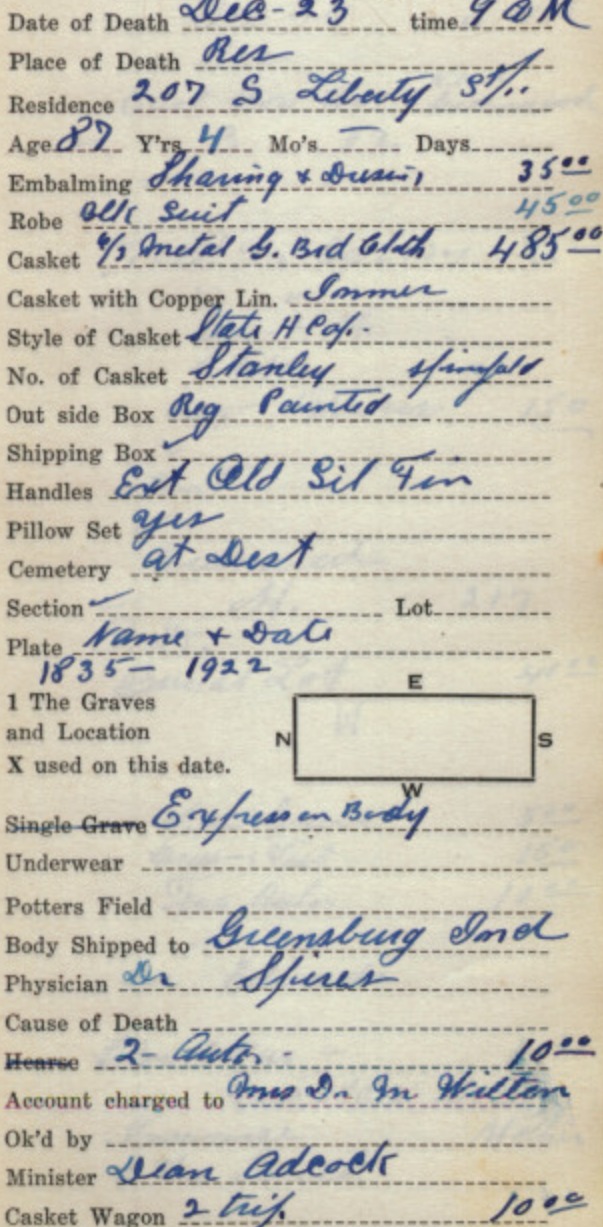 Date of Death Dec-23 time 9 AM
Place of Death Res
Residence 207 S Liberty St.
Age 87 Y'rs 4 Mo's — Days
Embalming Shaving + 35 00
Robe Blk Suit 45 00
Casket 6/3 Metal G. Brd Cloth 485 00
Casket with Copper Lin. Inner
Style of Casket State H
No. of Casket Stanley
Out side Box Reg Painted
Shipping Box ✓
Handles Ext Old Sil Fin
Pillow Set yes
Cemetery at Dest
Section ✓ Lot
Plate Name + Date
1835 - 1922
E
1 The Graves
and Location
X used on this date.
N S
W
Single Grave Express on Body
Underwear
Potters Field
Body Shipped to Greensburg Ind
Physician Dr Spires
Cause of Death
Hearse 2- Autos - 10 00
Account charged to Mrs Dr M Wilton
Ok'd by
Minister Dean Adcock
Casket Wagon 2 trip 10 00